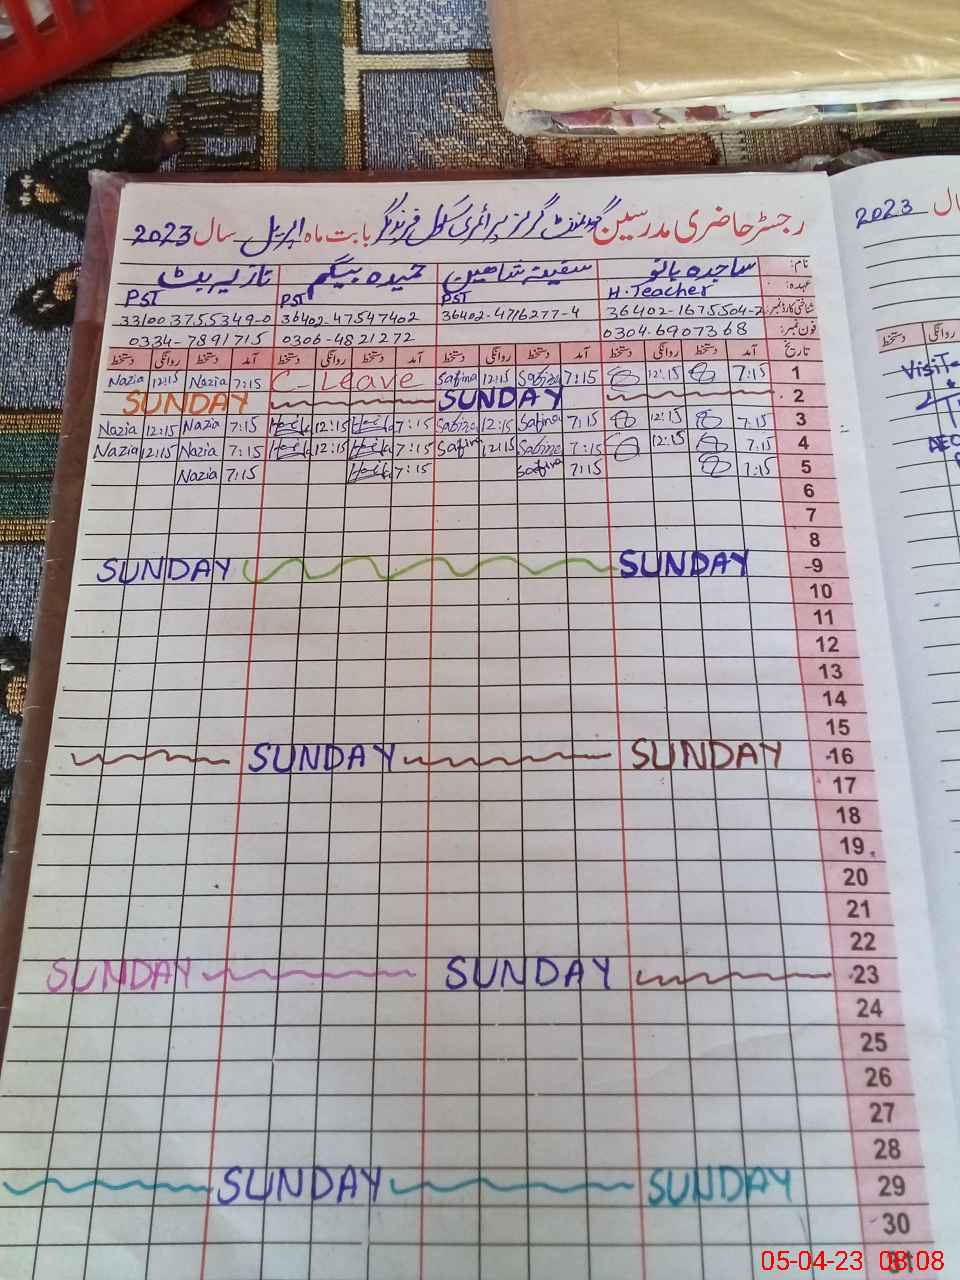 رجسٹر حاضری مدرسین گورنمنٹ گرلز پرائمری سکول فرید نگر بابت ماہ اپریل سال 2023
نام: ساجدہ بانو سفینہ شاہین حمیدہ بیگم نازیہ بٹ
عہدہ: H.Teacher PST PST PST
شناختی کارڈ نمبر: 36402-1675504-2 36402-4716277-4 36402-47547402 33100 3755349-0
فون نمبر: 0304-6907368 0306-4821272 0334-7891715
تاریخ آمد دستخط روانگی دستخط آمد دستخط روانگی دستخط آمد دستخط روانگی دستخط آمد دستخط روانگی دستخط
Nazia 12:15 Nazia 7:15 C-Leave Safina 12:15 Safina 7:15 12:15 7:15 1
SUNDAY SUNDAY 2
Nazia 12:15 Nazia 7:15 12:15 7:15 Safina 12:15 Safina 7:15 12:15 7:15 3
Nazia 12:15 Nazia 7:15 12:15 7:15 Safina 12:15 Safina 7:15 12:15 7:15 4
Nazia 7:15 7:15 Safina 7:15 7:15 5
6
7
8
SUNDAY SUNDAY 9
10
11
12
13
14
15
SUNDAY SUNDAY 16
17
18
19
20
21
22
SUNDAY SUNDAY 23
24
25
26
27
28
SUNDAY SUNDAY 29
30
31
2023 سال
روانگی دستخط
05-04-23 08:08